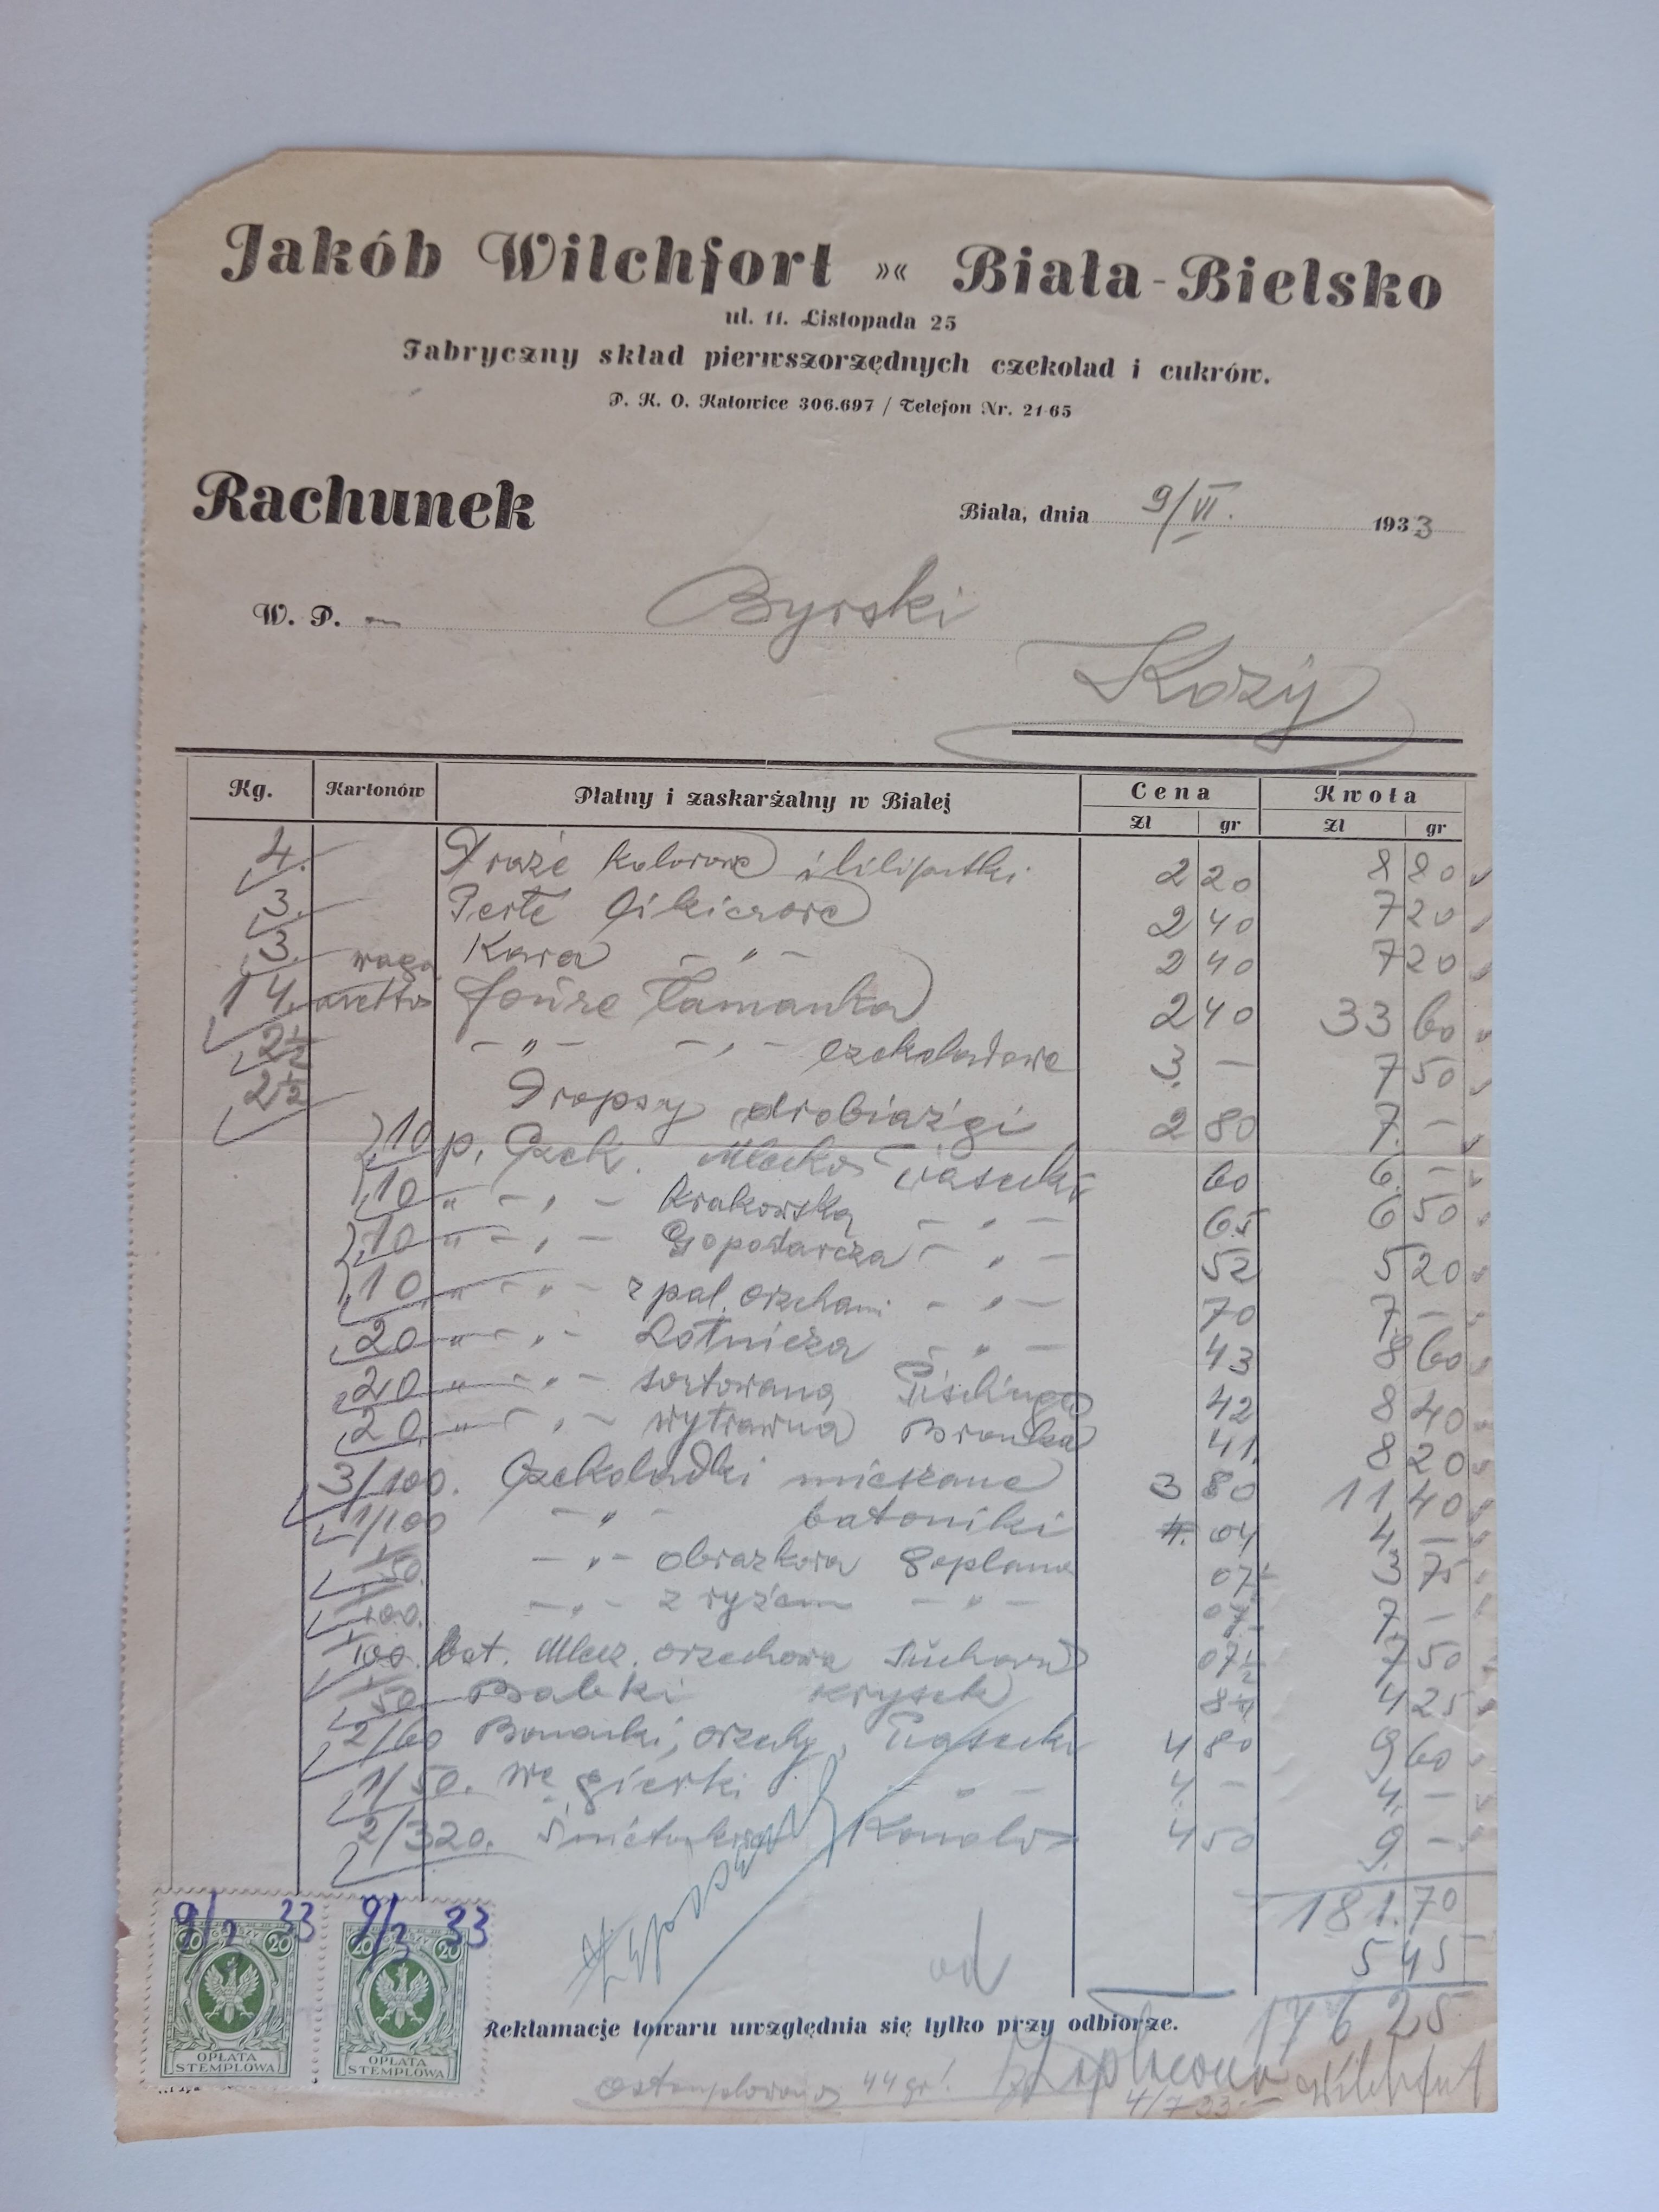 Jakób Wilchfort »« Biała-Bielsko
ul. 11. Listopada 25
Fabryczny skład pierwszorzędnych czekolad i cukrów.
P. K. O. Katowice 306.697 / Telefon Nr. 21-65
Rachunek
Biała, dnia 9/VI. 1933
W. P. Byrski
Kozy
Kg. Kartonów Płatny i zaskarżalny w Białej Cena Kwota
Zł gr Zł gr
4. Draże kolorowe i liliputki 2 20 8 80
3. Perłe likierowe 2 40 7 20
3. Kawa - " - 2 40 7 20
14. waga netto łamanka 2 40 33 60
2½ - " - - " - czekoladowe 3 - 7 50
2½ Dropsy drobiazgi 2 80 7. -
10 p. Czek. Mleko Piasecki 60 6. -
10 " - " - Krakowska - " - 65 6 50
10 " - " - Gopodarcza - " - 52 5 20
10 " - " - z pal. orzechami - " - 70 7. -
20 " - " - Lotnicza - " - 43 8 60
20 " - " - sortowana Pischinger 42 8 40
20 " - " - wytrawna Branka 41 8 20
3/100. Czekoladki mieszane 3 80 11 40
1/100 - " - batoniki 04 4 -
1/50. - " - obrazkowa Goplana 07½ 3 75
1/100. - " - z ryżem - " - 07 7 -
1/100. bat. Mlecz. orzechowa Suchard 07½ 7 50
1/50. Babki 8½ 4 25
2/60 orzechy, Piasecki 4 80 9 60
1/50. Węgierki - " - 4. - 4. -
2/320. Śmietankowe 4 50 9. -
181.70
5 45
176 25
od
Reklamacje towaru uwzględnia się tylko przy odbiorze.
ostemplowano 44 gr! Zapłacono Wilchfort
4/7 33.-
9/7 33 9/7 33
20 20 20 20
OPŁATA STEMPLOWA OPŁATA STEMPLOWA